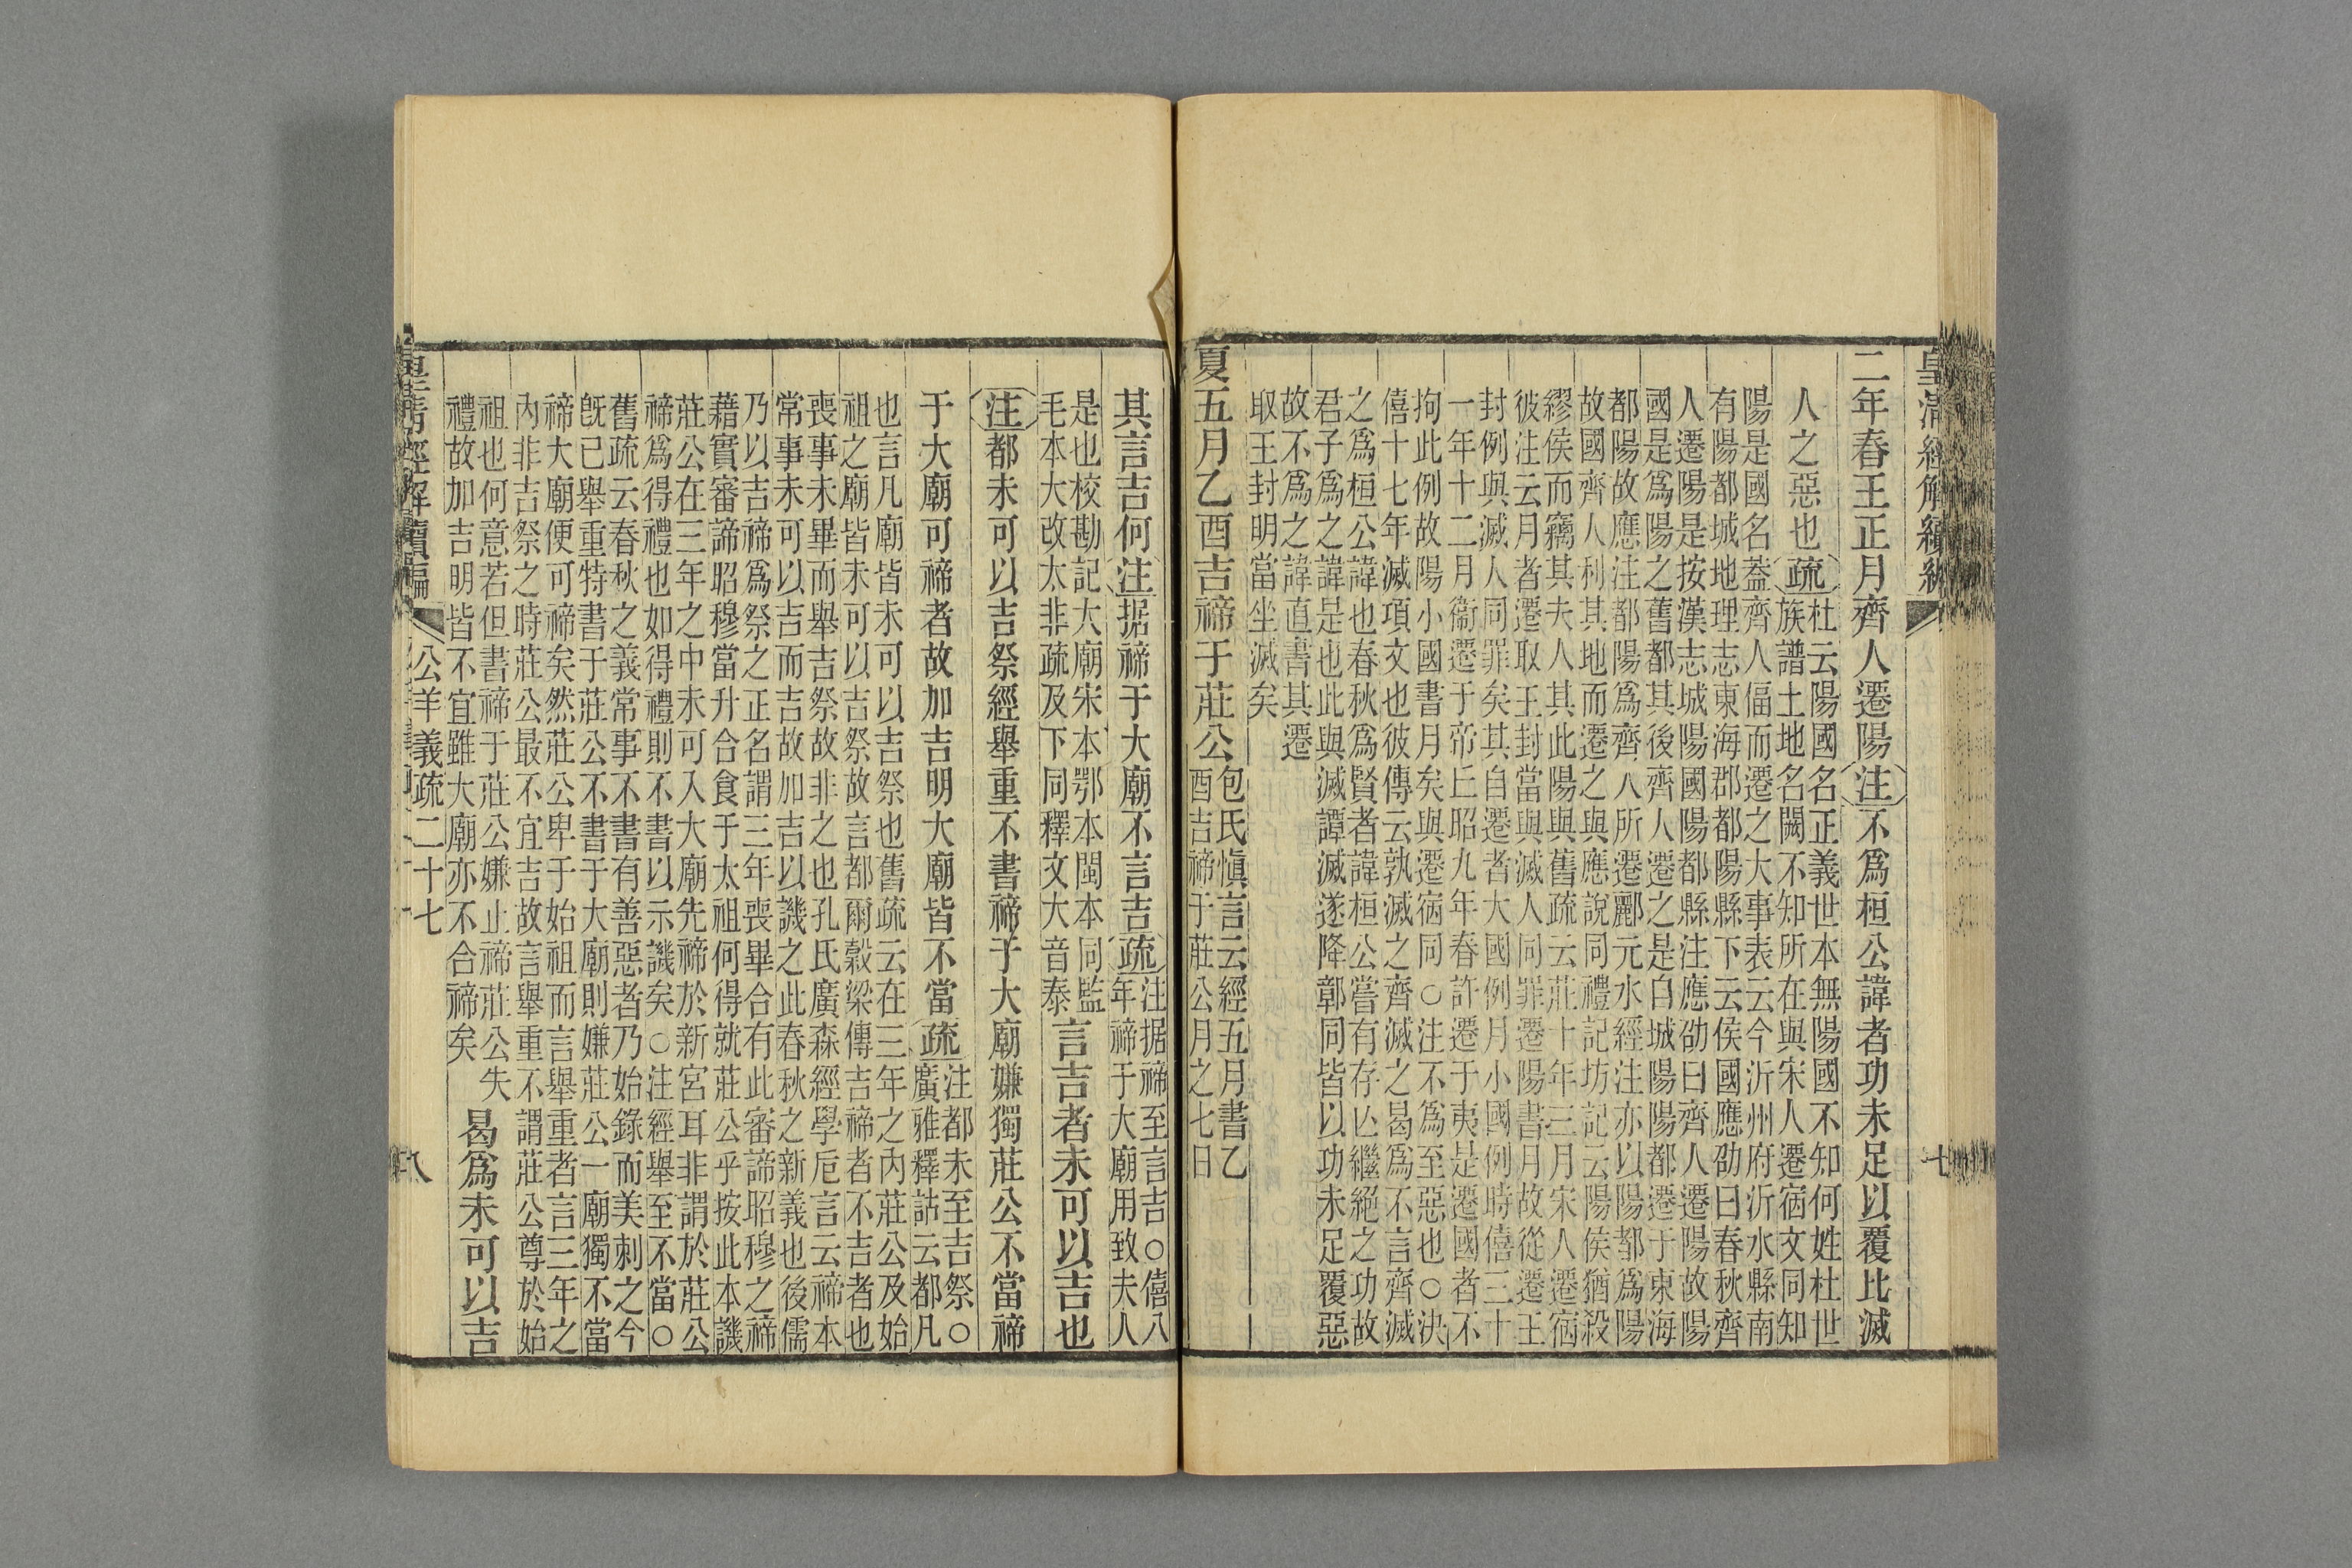 皇清經解續編
七
二年春王正月齊人遷陽注不爲桓公諱者功未足以覆比滅
人之惡也疏
杜云陽國名正義世本無陽國不知何姓杜世
族譜土地名闕不知所在與宋人遷宿文同知
陽是國名葢齊人偪而遷之大事表云今沂州府沂水縣南
有陽都城地理志東海郡都陽縣下云侯國應劭曰春秋齊
人遷陽是按漢志城陽國陽都縣注應劭曰齊人遷陽故陽
國是爲陽之舊都其後齊人遷之是白城陽陽都遷于東海
都陽故應注都陽爲齊人所遷酈元水經注亦以陽都爲陽
故國齊人利其地而遷之與應說同禮記坊記云陽侯猶殺
繆侯而竊其夫人其此陽與舊疏云莊十年三月宋人遷宿
彼注云月者遷取王封當與滅人同罪遷陽書月故從遷王
封例與滅人同罪矣其自遷者大國例月小國例時僖三十
一年十二月衞遷于帝丘昭九年春許遷于夷是遷國者不
拘此例故陽小國書月矣與遷宿同○注不爲至惡也○決
僖十七年滅項文也彼傳云孰滅之齊滅之曷爲不言齊滅
之爲桓公諱也春秋爲賢者諱桓公嘗有存亾繼絕之功故
君子爲之諱是也此與滅譚滅遂降鄣同皆以功未足覆惡
故不爲之諱直書其遷
取王封明當坐滅矣
夏五月乙酉吉禘于莊公
包氏愼言云經五月書乙
酉吉禘于莊公月之七日
其言吉何注据禘于大廟不言吉疏
注据禘至言吉○僖八
年禘于大廟用致夫人
是也校勘記大廟宋本鄂本閩本同監
毛本大改太非疏及下同釋文大音泰
言吉者未可以吉也
注都未可以吉祭經舉重不書禘于大廟嫌獨莊公不當禘
于大廟可禘者故加吉明大廟皆不當疏
注都未至吉祭○
廣雅釋詁云都凡
也言凡廟皆未可以吉祭也舊疏云在三年之內莊公及始
祖之廟皆未可以吉祭故言都爾穀梁傳吉禘者不吉者也
喪事未畢而舉吉祭故非之也孔氏廣森經學巵言云禘本
常事未可以吉而吉故加吉以譏之此春秋之新義也後儒
乃以吉禘爲祭之正名謂三年喪畢合有此審諦昭穆之禘
藉實審諦昭穆當升合食于太祖何得就莊公乎按此本譏
莊公在三年之中未可入大廟先禘於新宮耳非謂於莊公
禘爲得禮也如得禮則不書以示譏矣○注經舉至不當○
舊疏云春秋之義常事不書有善惡者乃始錄而美刺之今
旣已舉重特書于莊公不書于大廟則嫌莊公一廟獨不當
禘大廟便可禘矣然莊公卑于始祖而言舉重者言三年之
內非吉祭之時莊公最不宜吉故言舉重不謂莊公尊於始
祖也何意若但書禘于莊公嫌止禘莊公失
禮故加吉明皆不宜雖大廟亦不合禘矣
曷爲未可以吉
皇清經解續編
公羊義疏二十七
八